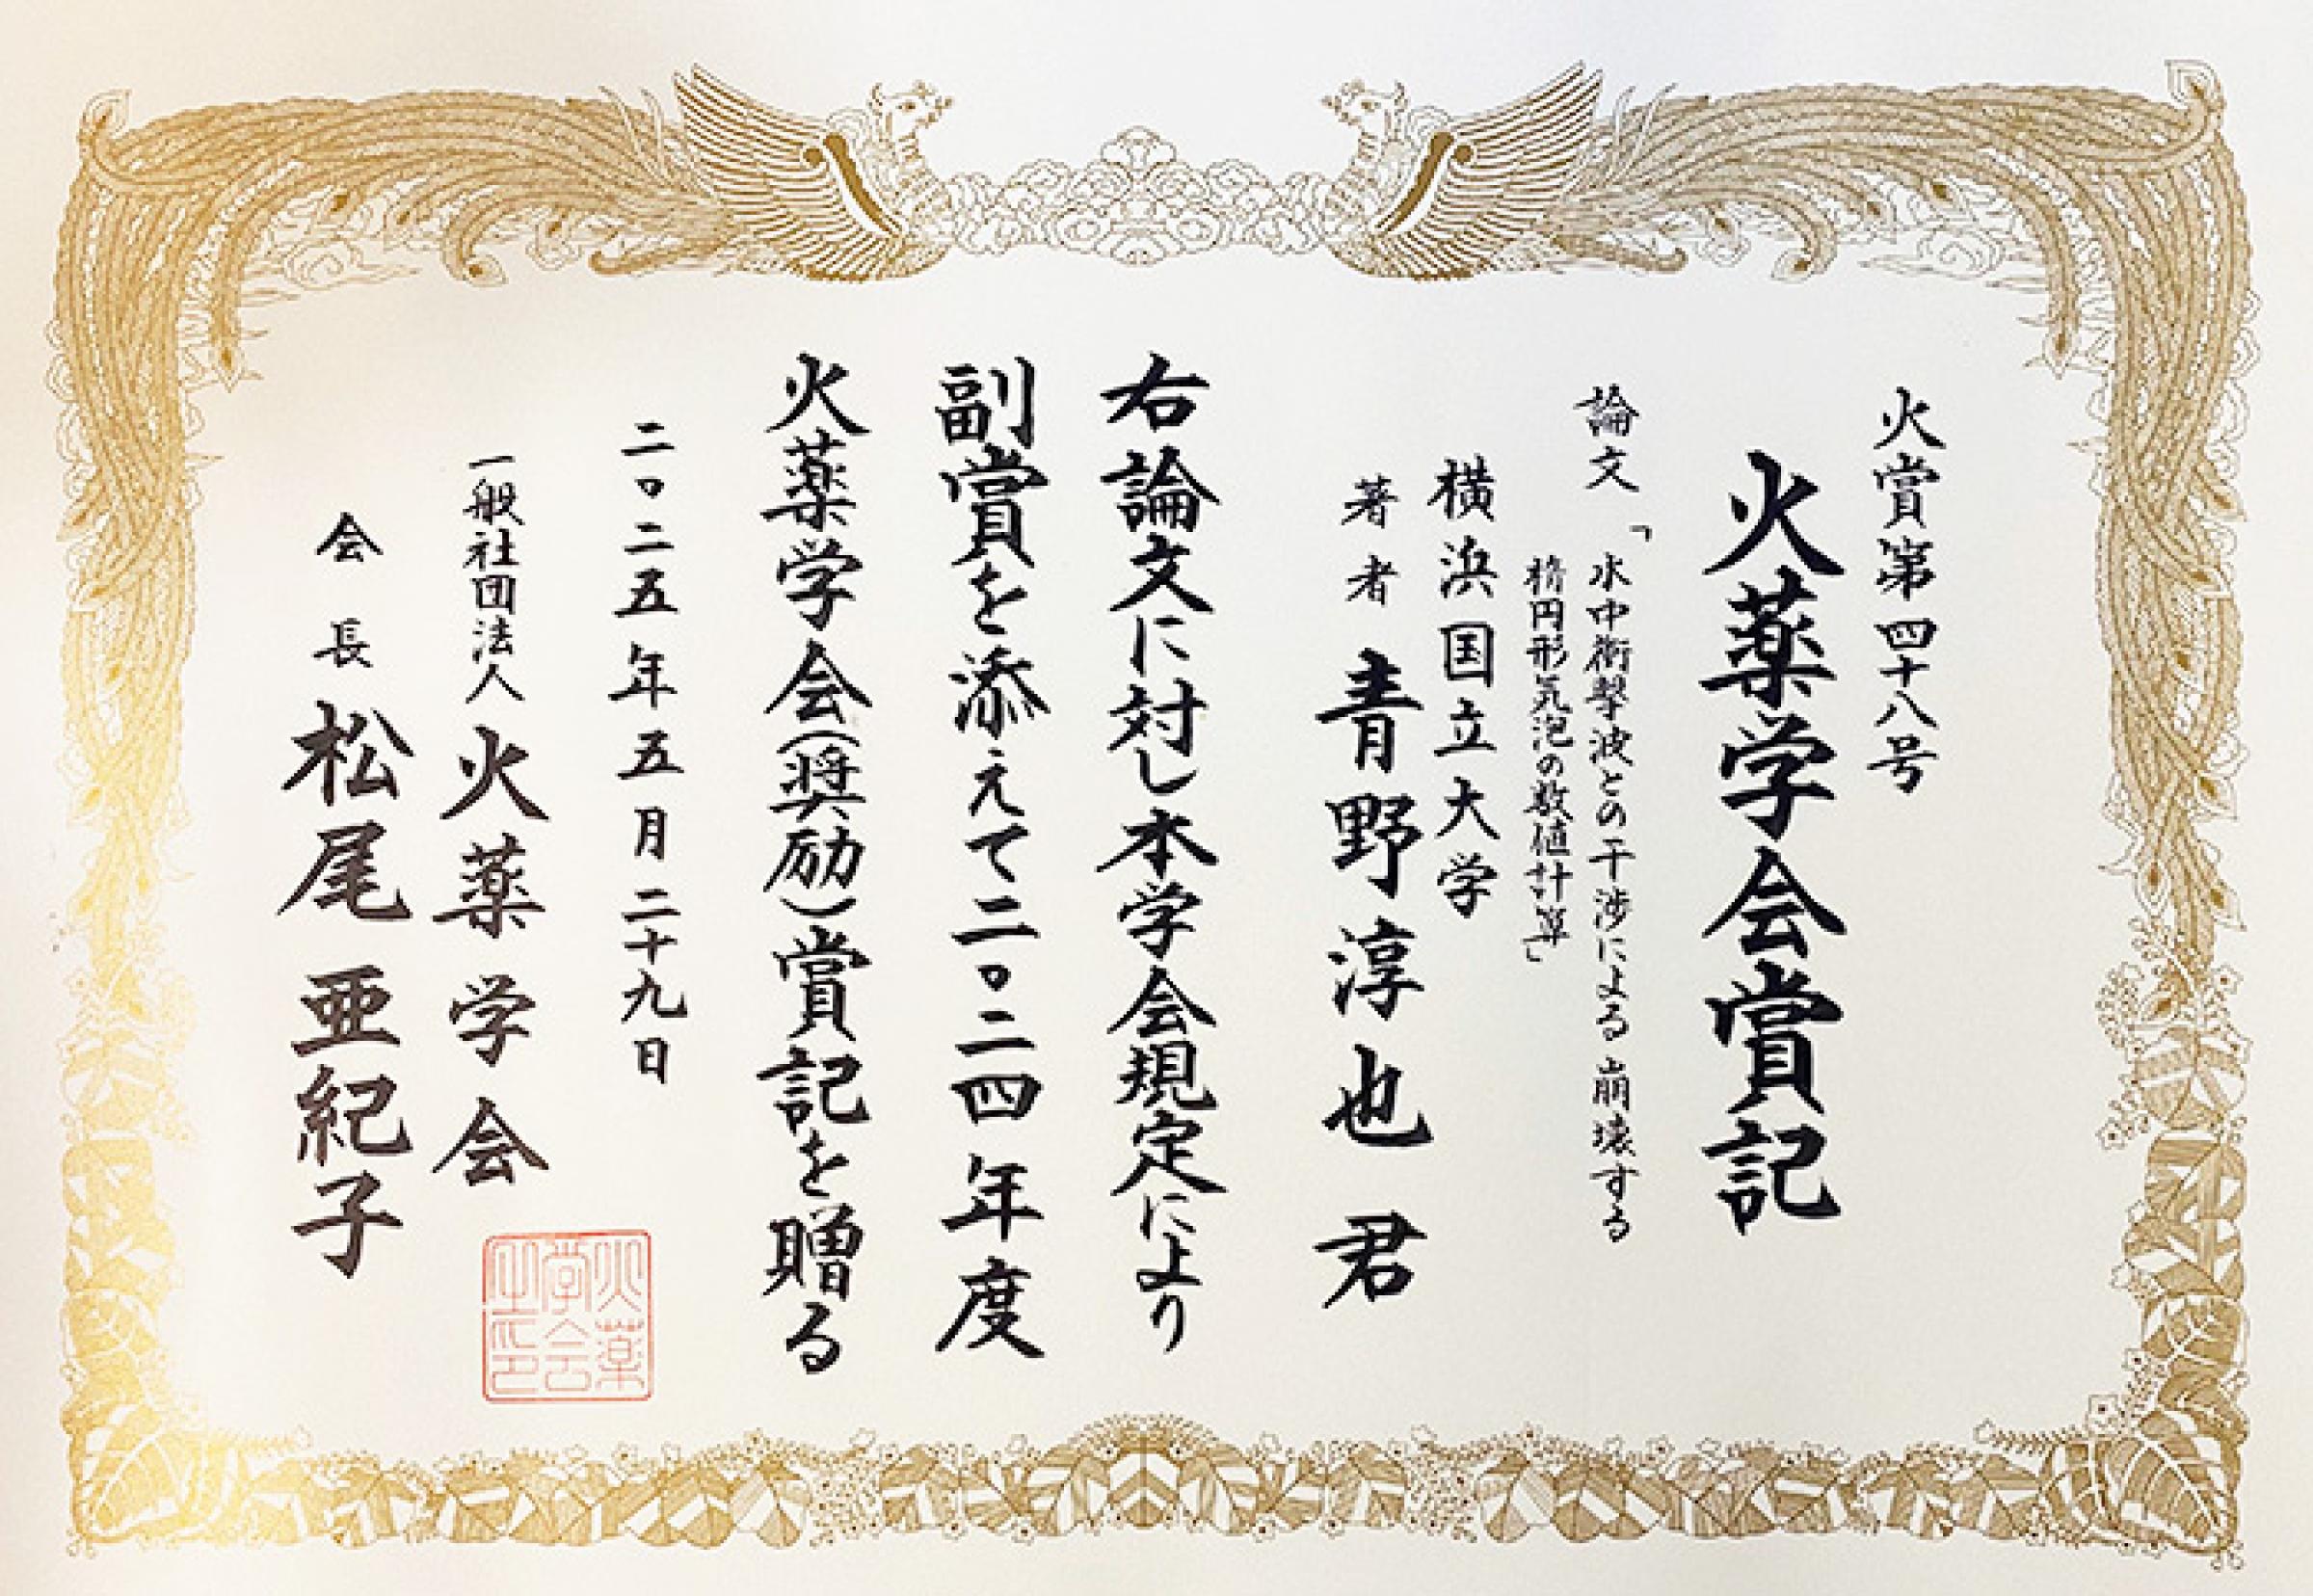 火賞第四十八号
火薬学会賞記
論文「水中衝撃波との干渉による崩壊する
楕円形気泡の数値計算」
横浜国立大学
著者 青野淳也 君
右論文に対し本学会規定により
副賞を添えて二〇二四年度
火薬学会(奨励)賞記を贈る
二〇二五年五月二十九日
一般社団法人 火薬学会
会長 松尾亜紀子
火薬
学会
之印